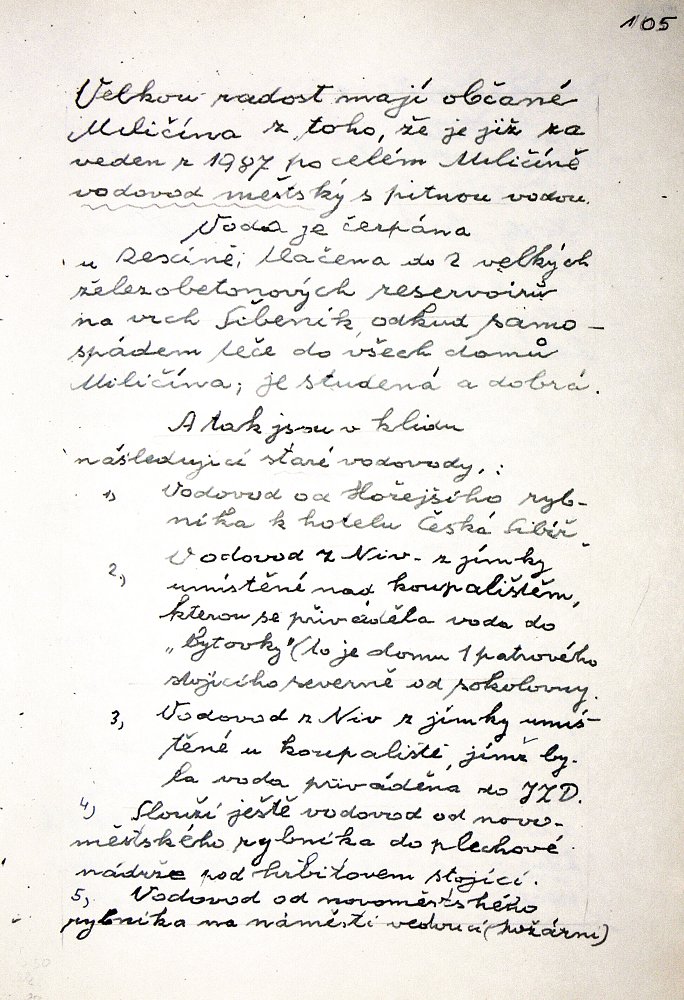 105
Velkou radost mají občané
Miličína z toho, že je již za
veden r 1987 po celém Miličíně
vodovod městský s pitnou vodou.
Voda je čerpána
u Reksíně; tlačena do 2 velkých
železobetonových reservoirů
na vrch Šibeník, odkud samo-
spádem teče do všech domů
Miličína; je studená a dobrá.
A tak jsou v klidu
následující staré vodovody, :
1) Vodovod od Hořejšího ryb-
níka k hotelu Česká Sibiř
2, Vodovod z Niv - z jímky
umístěné nad koupalištěm,
kterou se přiváděla voda do
„Bytovky" (to je domu 1 patrového
stojícího severně od sokolovny.
3, Vodovod z Niv z jímky umís-
těné u koupaliště, jímž by-
la voda přiváděna do JZD.
4) Slouží ještě vodovod od novo-
městského rybníka do plechové
nádrže pod hřbitovem stojící.
5, Vodovod od novoměstského
rybníka na náměstí vedoucí (požární)